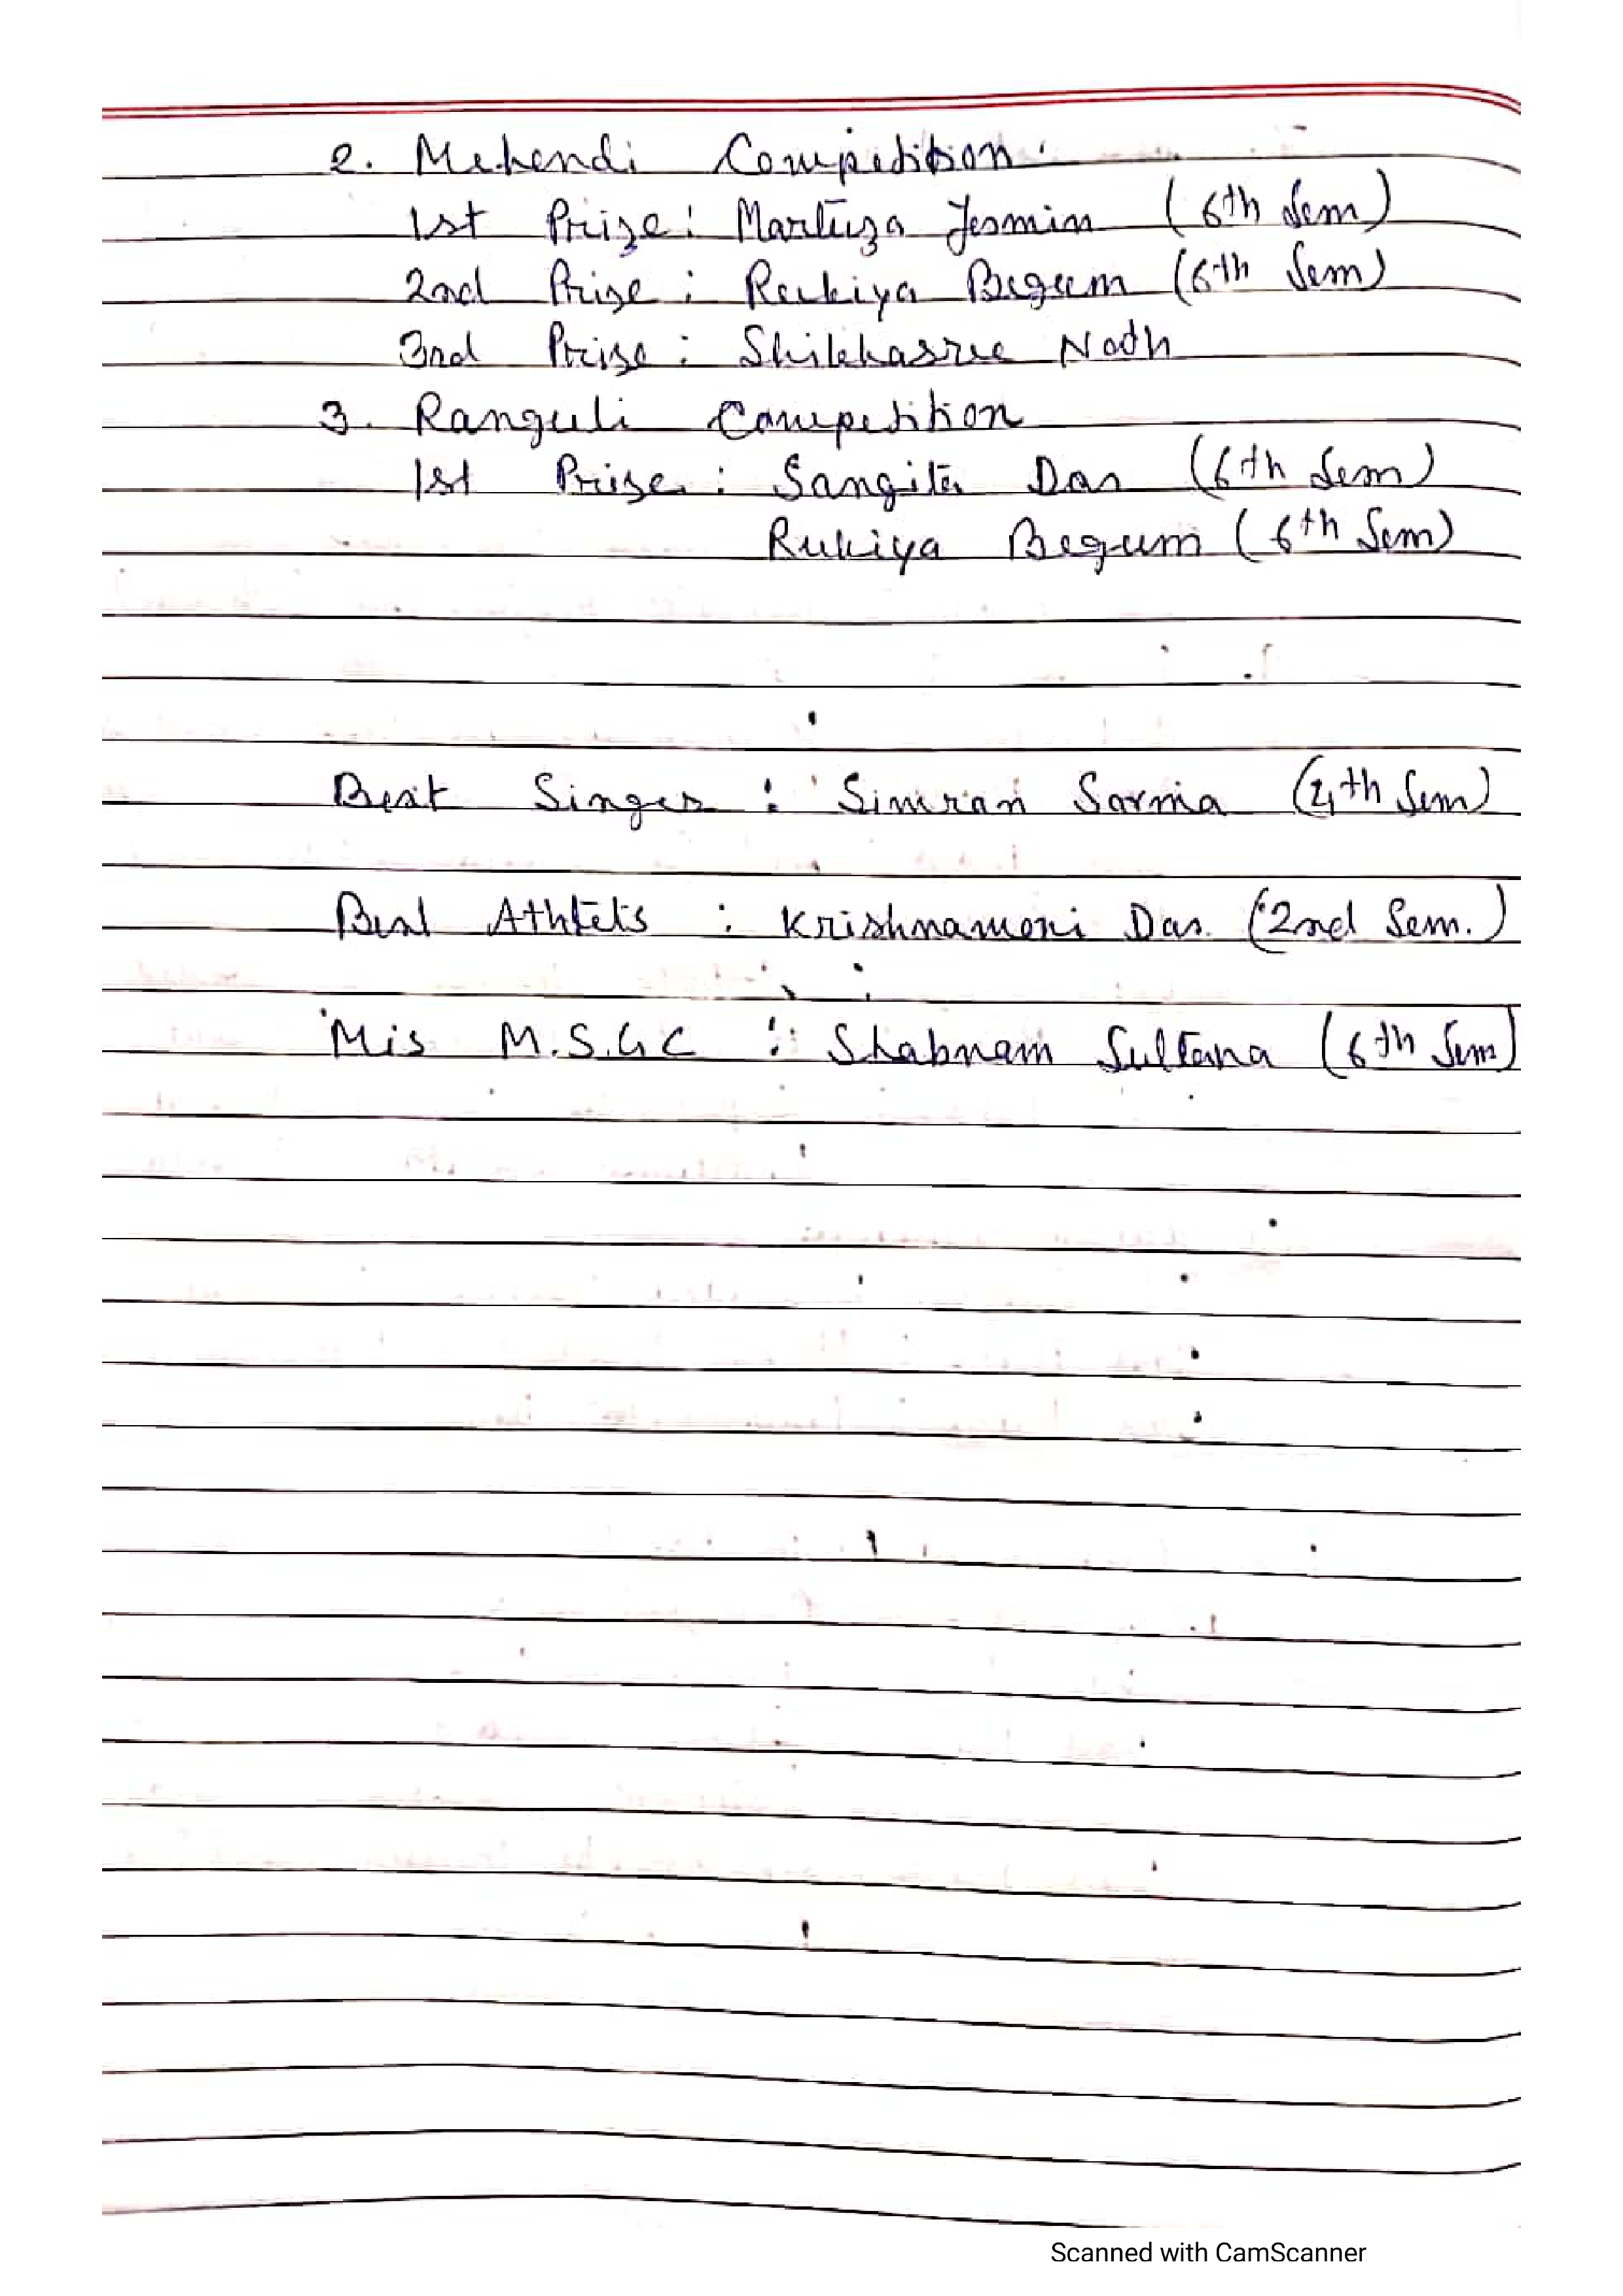 2. Mehendi Competition.
1st Prize: Martuza Jesmin (6th Sem)
2nd Prize : Rukiya Begum (6th Sem)
3rd Prize : Shikhasree Nath
3. Ranguli Competition
1st Prize : Sangita Das (6th Sem)
Rukiya Begum (6th Sem)
Best Singer : Simran Sarma (4th Sem)
Best Athlets : Krishnamoni Das (2nd Sem.)
Mis M.S.G.C : Shabnam Sultana (6th Sem)
Scanned with CamScanner